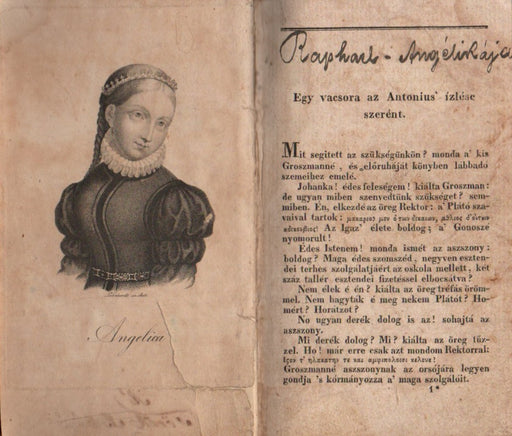 Angelica
Raphael - Angélikája
Egy vacsora az Antonius' ízlése
szerént.
Mit segitett az szükségünkön? monda a' kis
Groszmanné, és előruháját könyben lábbadó
szemeihez emelé.
Johanka! édes feleségem! kiálta Groszman:
de ugyan miben szenvedtünk szükséget? sem-
miben. Én, elkezdé az öreg Rektor: a' Plátó sza-
vaival tartok:
Az Igaz' élete boldog; a' Gonoszé
nyomorult!
Édes Istenem! monda ismét az aszszony:
boldog? Maga édes szomszéd, negyven eszten-
dei terhes szolgálatjáért az oskola mellett, két
száz tallér esztendei fizetéssel elbocsátva?
Nem élek é én? kiálta az öreg tréfás öröm-
mel. Nem hagyták é meg nekem Plátót? Ho-
mért? Horátzot?
No ugyan derék dolog is az! sohajtá az
aszszony.
Mi derék dolog? Mi? kiálta az öreg tűz-
zel. Ho! már erre csak azt mondom Rektorral:
Groszmanné aszszonynak az orsójára legyen
gondja 's kórmányozza a' maga szolgálóit.
1*